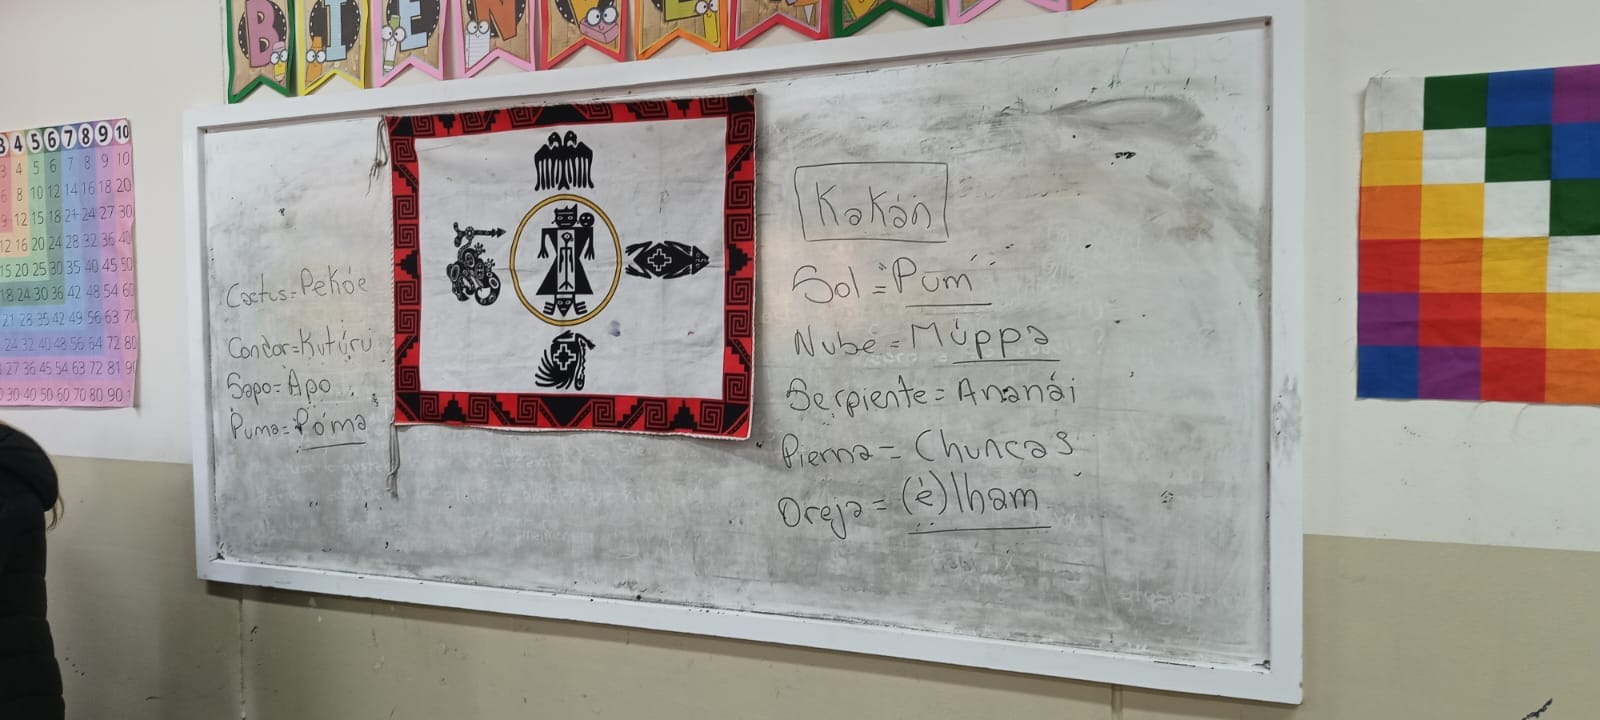 BIENVE
3 4 5 6 7 8 9 10
3 4 5 6 7 8 9 10
6 8 10 12 14 16 18 20
9 12 15 18 21 24 27 30
12 16 20 24 28 32 36 40
15 20 25 30 35 40 45 50
18 24 30 36 42 48 54 60
21 28 35 42 49 56 63 70
24 32 40 48 56 64 72 80
27 36 45 54 63 72 81 90
30 40 50 60 70 80 90
Cactus=Pekóe
Condor=Kutúru
Sapo=Apo
Puma=Póma
Kakán
Sol="Pum"
Nube=Múppa
Serpiente=Ananái
Pierna=Chuncas
Oreja=(é)lham